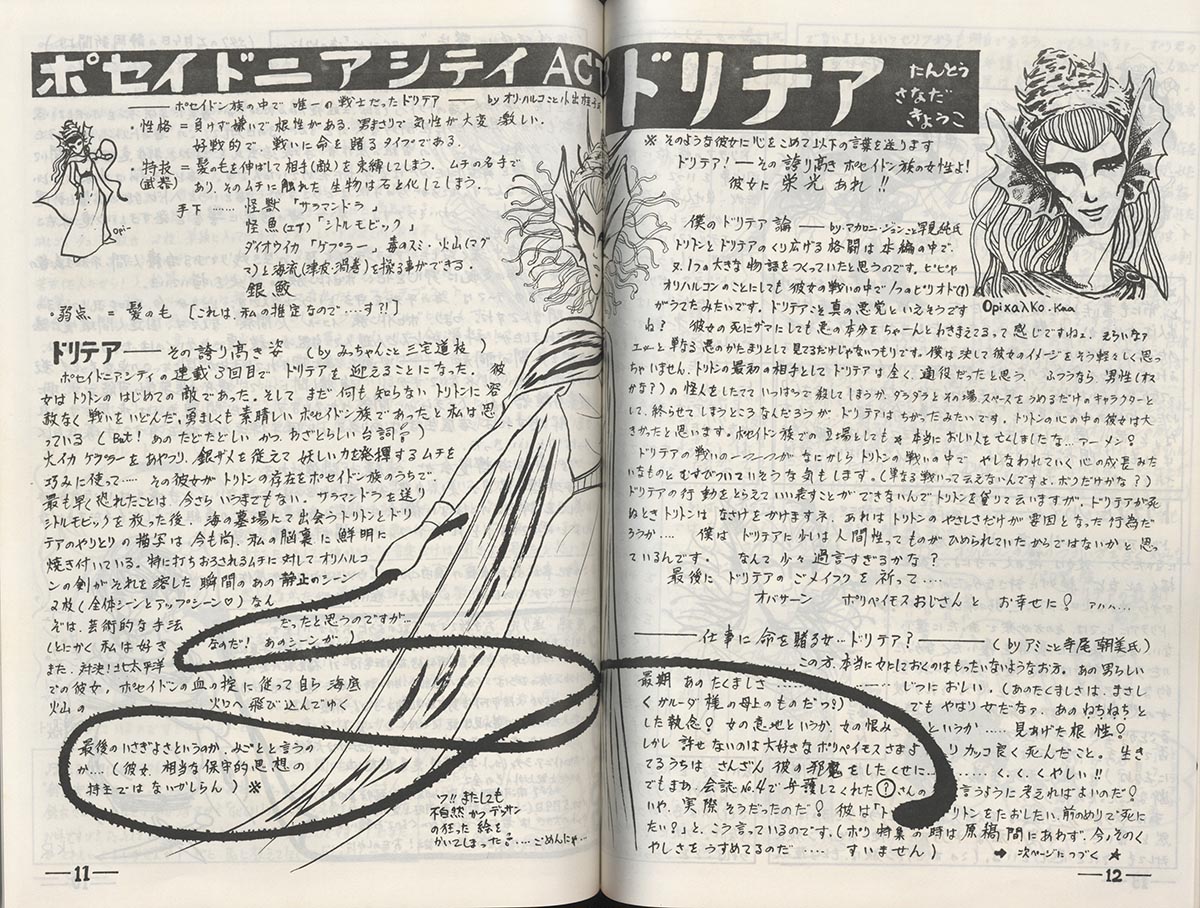 ポセイドニアシテイ ACT
ドリテア
たんとう
さなだ
きょうこ
ポセイドン族の中で 唯一の戦士だったドリテア
by オリ・ハルコこと小出
・性格 = 負けず嫌いで根性がある。男まさりで気性が大変激しい。
好戦的で、戦いに命を賭るタイプである。
・特技 = 髪の毛を伸ばして相手(敵)を束縛してしまう。ムチの名手で
(武器) あり、そのムチに触れた生物は石と化してしまう。
手下 …… 怪獣「サラマンドラ」
怪魚(エイ)「シトルモビック」
ダイオウイカ「ゲプラー」毒のスミ・火山(マグ
マ)と海流(津波・渦巻)を操る事ができる。
銀鮫
・弱点 = 髪の毛 [これは、私の推定なので……す?!]
Opi—
ドリテア — その誇り高き姿 (by みっちゃんこと三宅道枝)
ポセイドニアシティの連載3回目で ドリテアを迎えることになった。彼
女はトリトンのはじめての敵であった。そして まだ何も知らない トリトンに容
赦なく戦いをいどんだ、勇ましくも素晴しい ポセイドン族であったと私は思
っている (But! あのたどたどしい かつ、あざとらしい台詞
大イカ ゲプラーをあやつり、銀ザメを従えて 妖しい力を発揮するムチを
巧みに使って…… その彼女がトリトンの存在をポセイドン族のうちで、
最も早く恐れたことは、今さら いうまでもない。サラマンドラを送り
シトルモビックを放った後、海の墓場にて出会うトリトンとドリ
テアのやりとりの描写は今も尚、私の脳裏に鮮明に
焼き付いている。特に打ちおろされるムチに対してオリハルコ
ンの剣がそれを溶した瞬間のあの静止のシーン
2枚(全体シーンとアップシーン♡)なん
ぞは、芸術的な手法 だったと思うのですが…
(とにかく私は好き なのだ! あのシーンが)
また、対決!北太平洋
での彼女。ポセイドンの血の掟に従って自ら海底
火山の 火口へ飛び込んでゆく
最後のいさぎよさというのか、みごとと言うの
か…(彼女、相当な保守的思想の
持主ではないかしらん) ※
ワ!!またしても
不自然かつデッサン
の狂った絵を
かいてしまった…ごめんにゃ…
—11—
※ そのような彼女に心をこめて以下の言葉を送ります
ドリテア! — その誇り高き ポセイドン族の女性よ!
彼女に 栄光 あれ!!
僕の ドリテア論 — by・マカロニ・ジョンこと早見純氏
トリトンとドリテアのくり広げる格闘は 本編の中で、
又、1つの大きな物語をつくっていたと思うのです。ピピや
オリハルコンのことにしても 彼女の戦いの中で 1つのピリオド(?)
がうてたみたいです。ドリテアこそ真の悪党といえそうです
ね? 彼女の死にザマにしても悪の本分をちゃーんとわきまえてるって感じですねェ。
エッーと 単なる悪のかたまりとして見てるだけじゃないつもりです。僕は決して彼女のイメージをそう軽々しく思っ
ちゃいません。トリトンの最初の相手として ドリテアは全く、適役だったと思う。ふつうなら、男性(オス
かな?)の怪人をしたてて いっぱつで殺してしまうか、ダラダラとその場、スペースをうめるだけのキャラクターと
して、終らせてしまうところなんだろうが、ドリテアはちがったみたいです。トリトンの心の中の彼女は大
きかったと思います。ポセイドン族での立場としても 本当におしい人を亡くしましたな…アーメン!
ドリテアの戦いの一つ一つが なにかしらトリトンの戦いの中で やしなわれていく心の成長みた
いなものと むすびついていそうな気もします。(単なる戦いって云えないんですよ、ボクだけかな?)
ドリテアの行動をとらえていい表すことができないんでトリトンを貸りて云いますが、ドリテアが死
ぬときトリトンはなさけをかけますネ、あれはトリトンのやさしさだけが要因となった行為だ
ろうか… 僕は ドリテアに少しは人間性ってものがひめられていたからではないかと思っ
ているんです。 なんて少々過言すぎるかな?
最後に ドリテアのごメイフクを祈って……
オバサーン ポリペイモスおじさんと お幸せに! アハハ…
— 仕事に命を賭るせ…ドリテア? — (by アミこと寺尾朝美氏)
この方、本当に女にしておくのはもったいないようなお方。あの男らしい
最期 あのたくましさ…… じつにおしい。(あのたくましさは、まさし
くガルーダ様の母上のものだっ!) でもやはり女だなァ、あのねちねちと
した執念! 女の意地というか、女の恨み というか…… 見あげた根性!
しかし許せないのは大好きなポリペイモスさまよ りカッコ良く死んだこと。生き
てるうちは、さんざん彼の邪魔をしたくせに… ……く、く、くやしい!!
でもまあ、会誌No.4で弁護してくれた?さんの 言うように考えればよいのだ!
いや、実際そうだったのだ! 彼は「ト リトンをたおしたい、前のめりで死に
たい?」と、こう言っているのです。(ポリ特集の時は原稿間にあわず、今、そのく
やしさをうすめてるのだ…… すいません)
➡ 次ページにつづく ☆
—12—